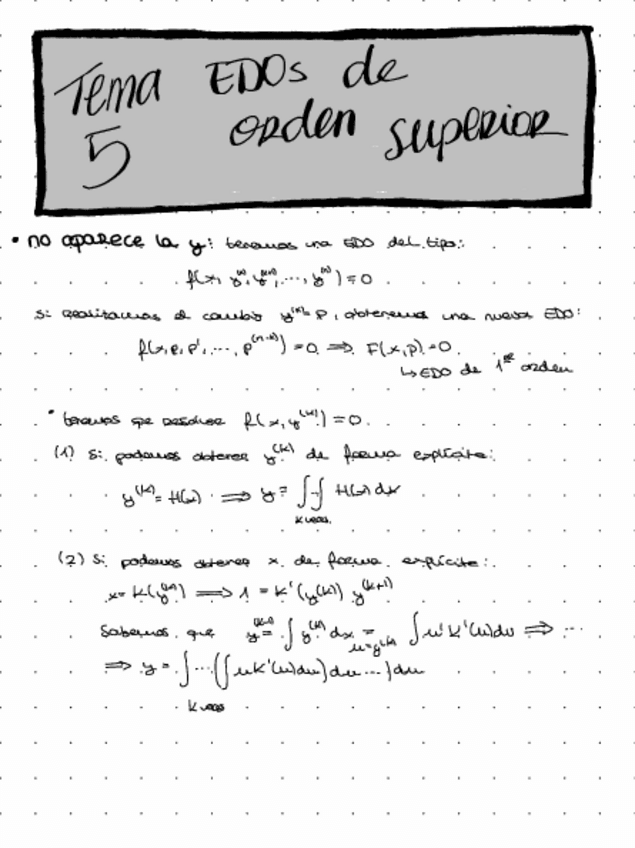 Tema EDOs de
5 orden superior
• no aparece la y: tenemos una EDO del tipo:
f(x, y⁽ᵏ⁾, y⁽ᵏ⁺¹⁾, ..., y⁽ⁿ⁾) = 0
Si realizamos el cambio y⁽ᵏ⁾ = p, obtenemos una nueva EDO:
f(x, p, p', ..., p⁽ⁿ⁻ᵏ⁾) = 0 ⟹ F(x, p) = 0
↳ EDO de 1er orden
• tenemos que resolver f(x, y⁽ᵏ⁾) = 0.
(1) Si podemos obtener y⁽ᵏ⁾ de forma explícita:
y⁽ᵏ⁾ = H(x) ⟹ y = ∫...∫ H(x) dx
k veces.
(2) Si podemos obtener x de forma explícita:
x = K(y⁽ᵏ⁾) ⟹ 1 = K'(y⁽ᵏ⁾) y⁽ᵏ⁺¹⁾
Sabemos que y⁽ᵏ⁻¹⁾ = ∫ y⁽ᵏ⁾ dx = ∫ u K'(u) du ⟹ ...
u = y⁽ᵏ⁾
⟹ y = ∫ ... (∫ u K'(u) du) du ... ) du
k veces